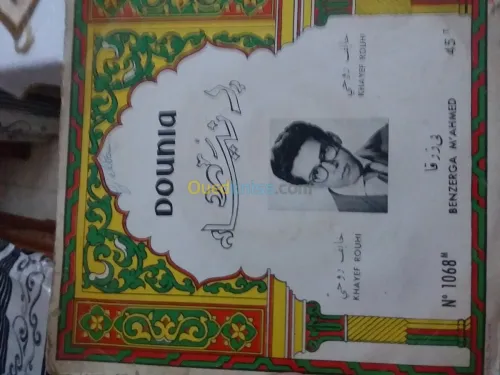 DOUNIA
Ouedkniss.com
خايف روحي
KHAYEF ROUHI
خايف روحي
KHAYEF ROUHI
زرقا
N° 1068 M
BENZERGA M'AHMED
45